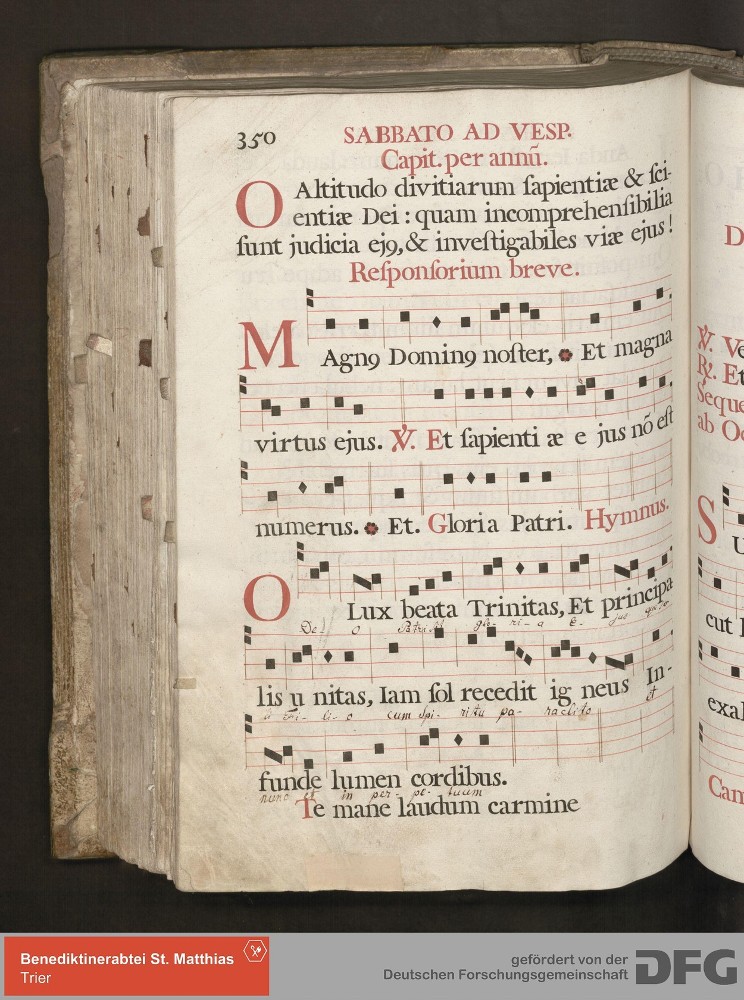 350
SABBATO AD VESP.
Capit. per annū.
O Altitudo divitiarum ſapientiæ & ſci-
entiæ Dei : quam incomprehenſibilia
ſunt judicia ejꝰ, & inveſtigabiles viæ ejus !
Reſponſorium breve.
MAgnꝰ Dominꝰ noſter, Et magna
virtus ejus. ℣. Et ſapienti æ e jus nō eſt
numerus. Et. Gloria Patri. Hymnus.
O Lux beata Trinitas, Et principa
De o Patri ſit glo- ri- a E- jus que ſo-
lis u nitas, Iam ſol recedit ig neus In-
li Fi- li- o cum Spi- ritu pa- raclito et
funde lumen cordibus.
nunc et in per- pe- tuum
Te mane laudum carmine
D
℣. Ve
℟. Et
Seque
ab Oc
S
U
cut
exal
Cam
Benediktinerabtei St. Matthias
Trier
gefördert von der
Deutschen Forschungsgemeinschaft
DFG